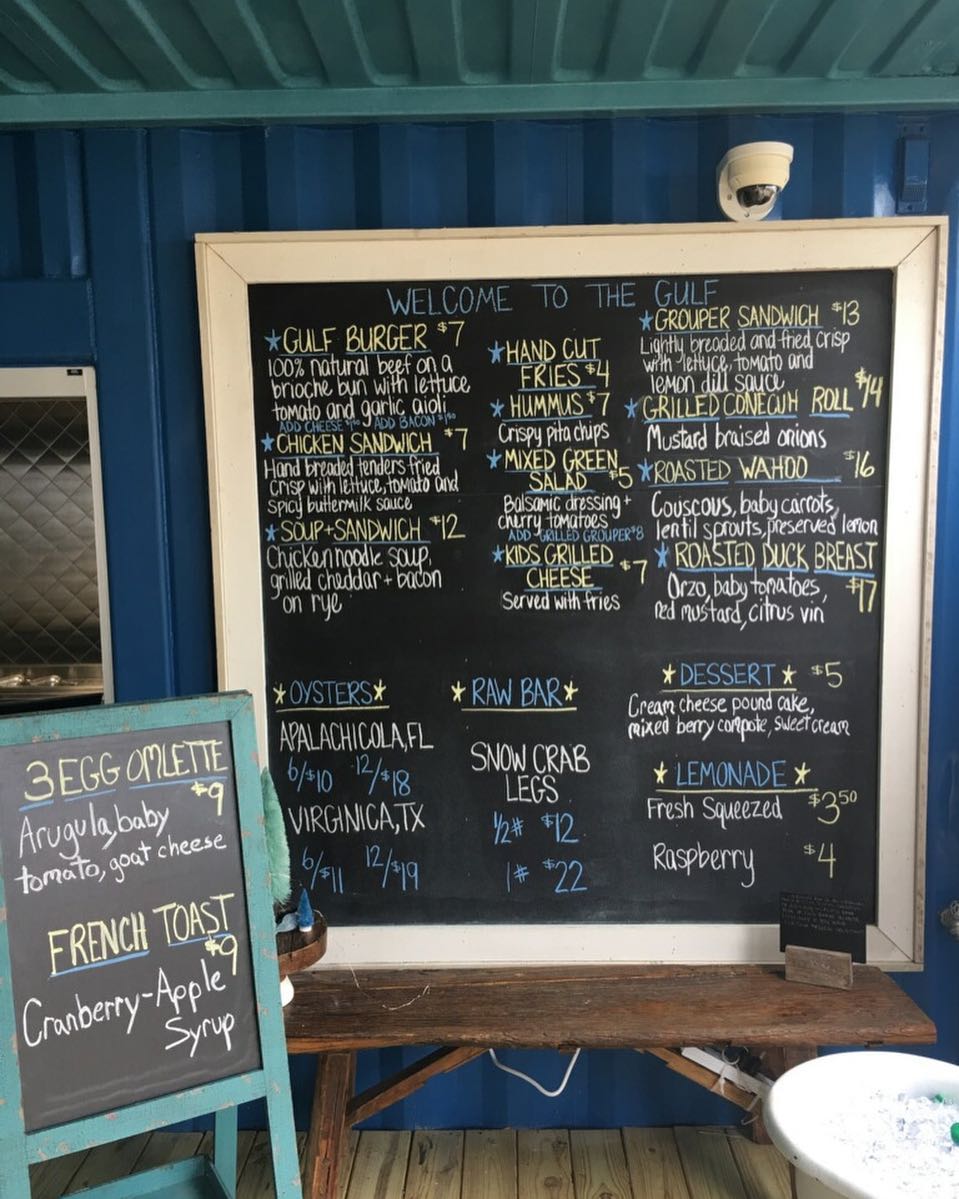 WELCOME TO THE GULF
★GULF BURGER $7
100% natural beef on a
brioche bun with lettuce
tomato and garlic aioli
ADD CHEESE $1.50 ADD BACON $1.50
★CHICKEN SANDWICH $7
Hand breaded tenders fried
crisp with lettuce, tomato and
spicy buttermilk sauce
★SOUP+SANDWICH $12
Chicken noodle soup,
grilled cheddar + bacon
on rye
★HAND CUT
FRIES $4
★HUMMUS $7
Crispy pita chips
★MIXED GREEN
SALAD $5
Balsamic dressing +
cherry tomatoes
ADD GRILLED GROUPER $8
★KIDS GRILLED
CHEESE $7
Served with fries
★GROUPER SANDWICH $13
Lightly breaded and fried crisp
with lettuce, tomato and
lemon dill sauce
★GRILLED CONECUH ROLL $14
Mustard braised onions
★ROASTED WAHOO $16
Couscous, baby carrots,
lentil sprouts, preserved lemon
★ROASTED DUCK BREAST
$17
Orzo, baby tomatoes,
red mustard, citrus vin
★OYSTERS★
APALACHICOLA, FL
6/$10 12/$18
VIRGINICA, TX
6/$11 12/$19
★RAW BAR★
SNOW CRAB
LEGS
1/2# $12
1# $22
★DESSERT★ $5
Cream cheese pound cake,
mixed berry compote, sweet cream
★LEMONADE★
Fresh Squeezed $3.50
Raspberry $4
3 EGG OMLETTE
$9
Arugula, baby
tomato, goat cheese
FRENCH TOAST
$9
Cranberry-Apple
Syrup